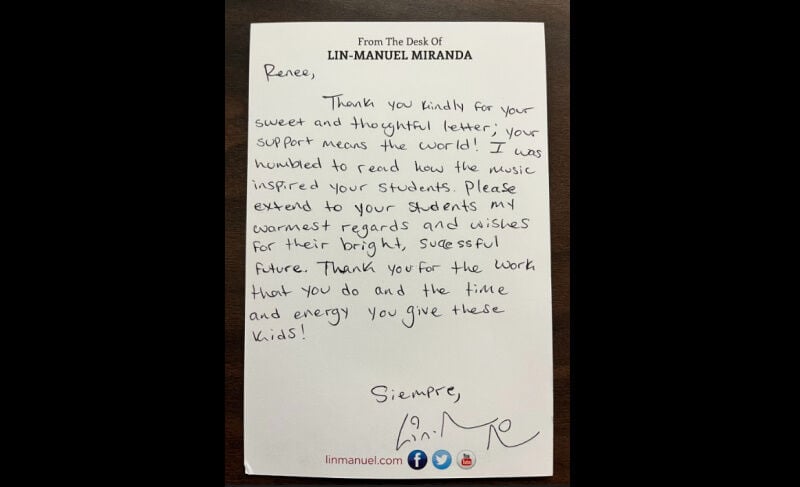 From The Desk Of
LIN-MANUEL MIRANDA
Renee,
Thank you kindly for your
sweet and thoughtful letter; your
support means the world! I was
humbled to read how the music
inspired your students. Please
extend to your students my
warmest regards and wishes
for their bright, sucessful
future. Thank you for the work
that you do and the time
and energy you give these
kids!
Siempre,
Lin-M
linmanuel.com